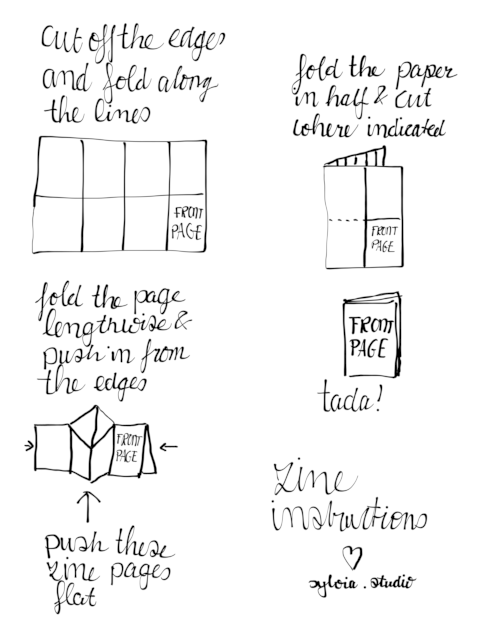 cut off the edges
and fold along
the lines
FRONT
PAGE
fold the paper
in half & cut
where indicated
FRONT
PAGE
fold the page
lengthwise &
push in from
the edges
FRONT
PAGE
push these
zine pages
flat
FRONT
PAGE
tada!
zine
instructions
sylvia.studio